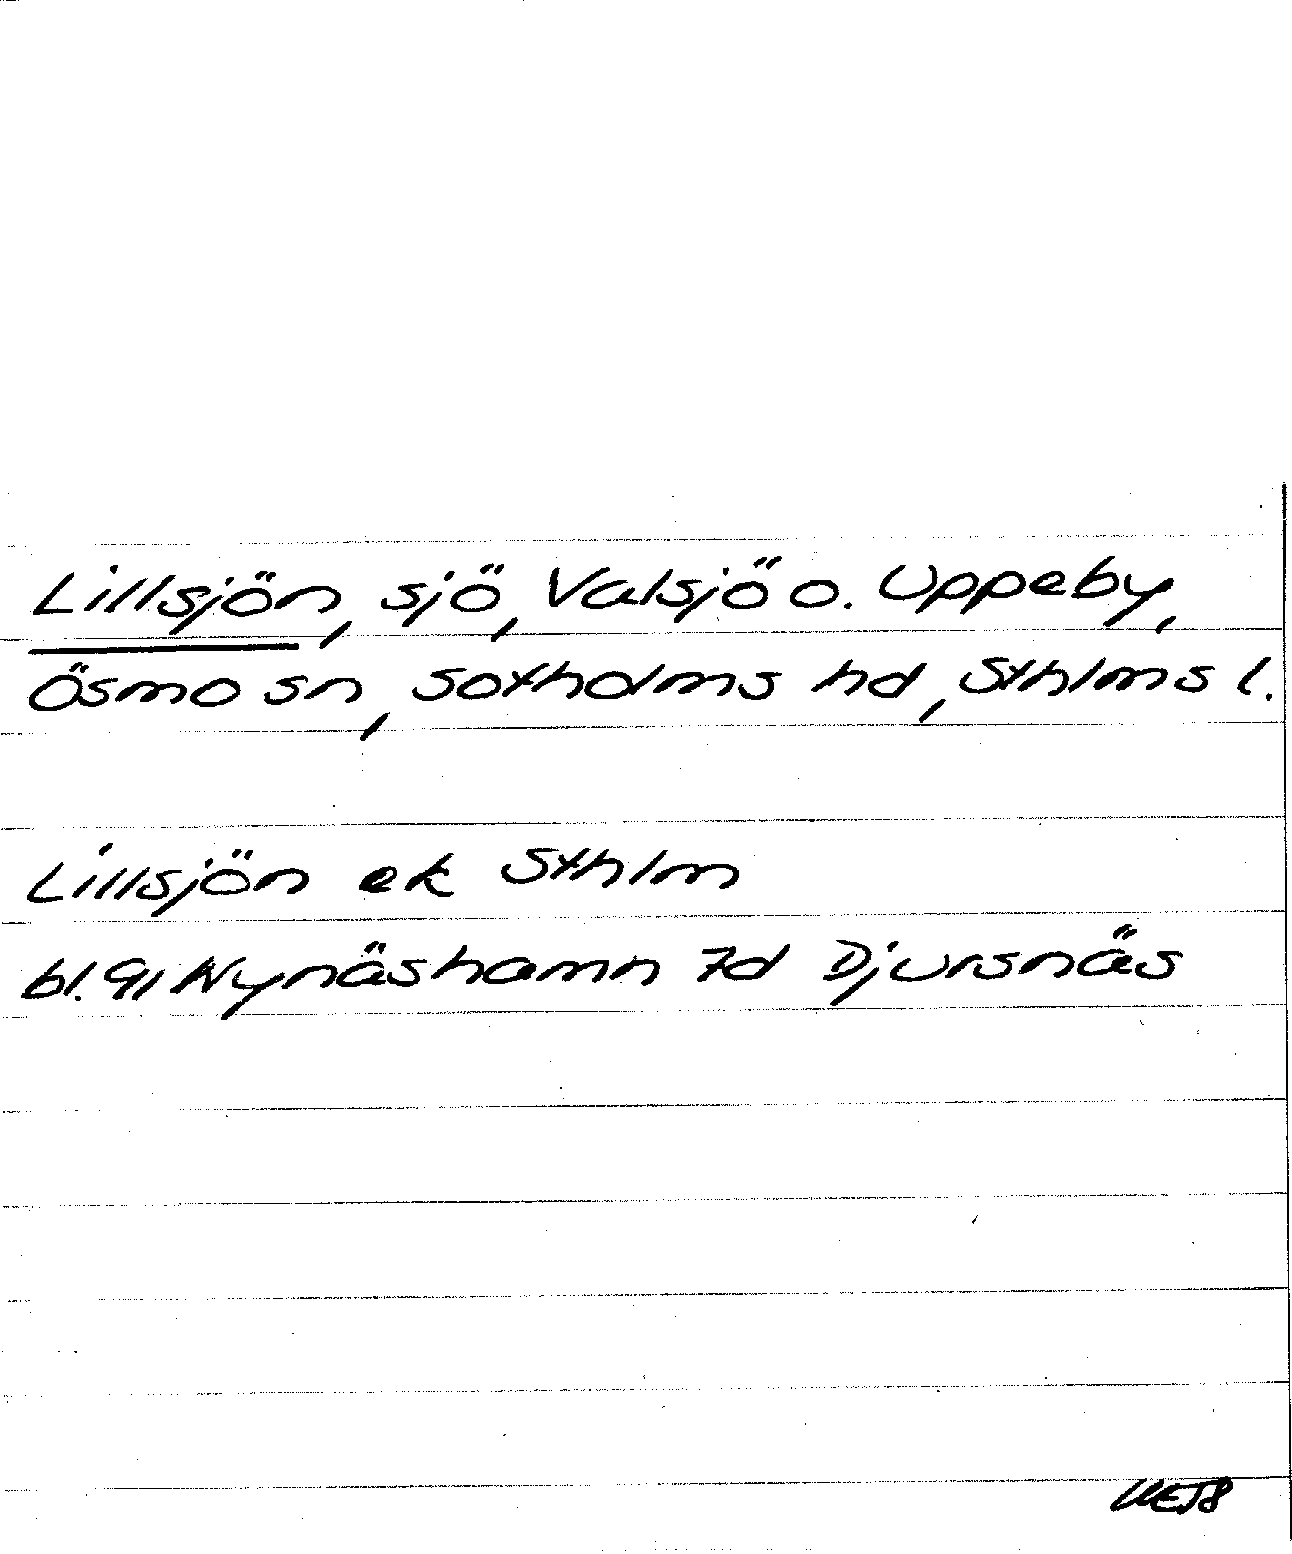 Lillsjön, sjö, Valsjö o. Uppeby,
Ösmo sn, Sotholms hd, Sthlms l.
Lillsjön ek Sthlm
bl. 91 Nynäshamn 7d Djursnäs